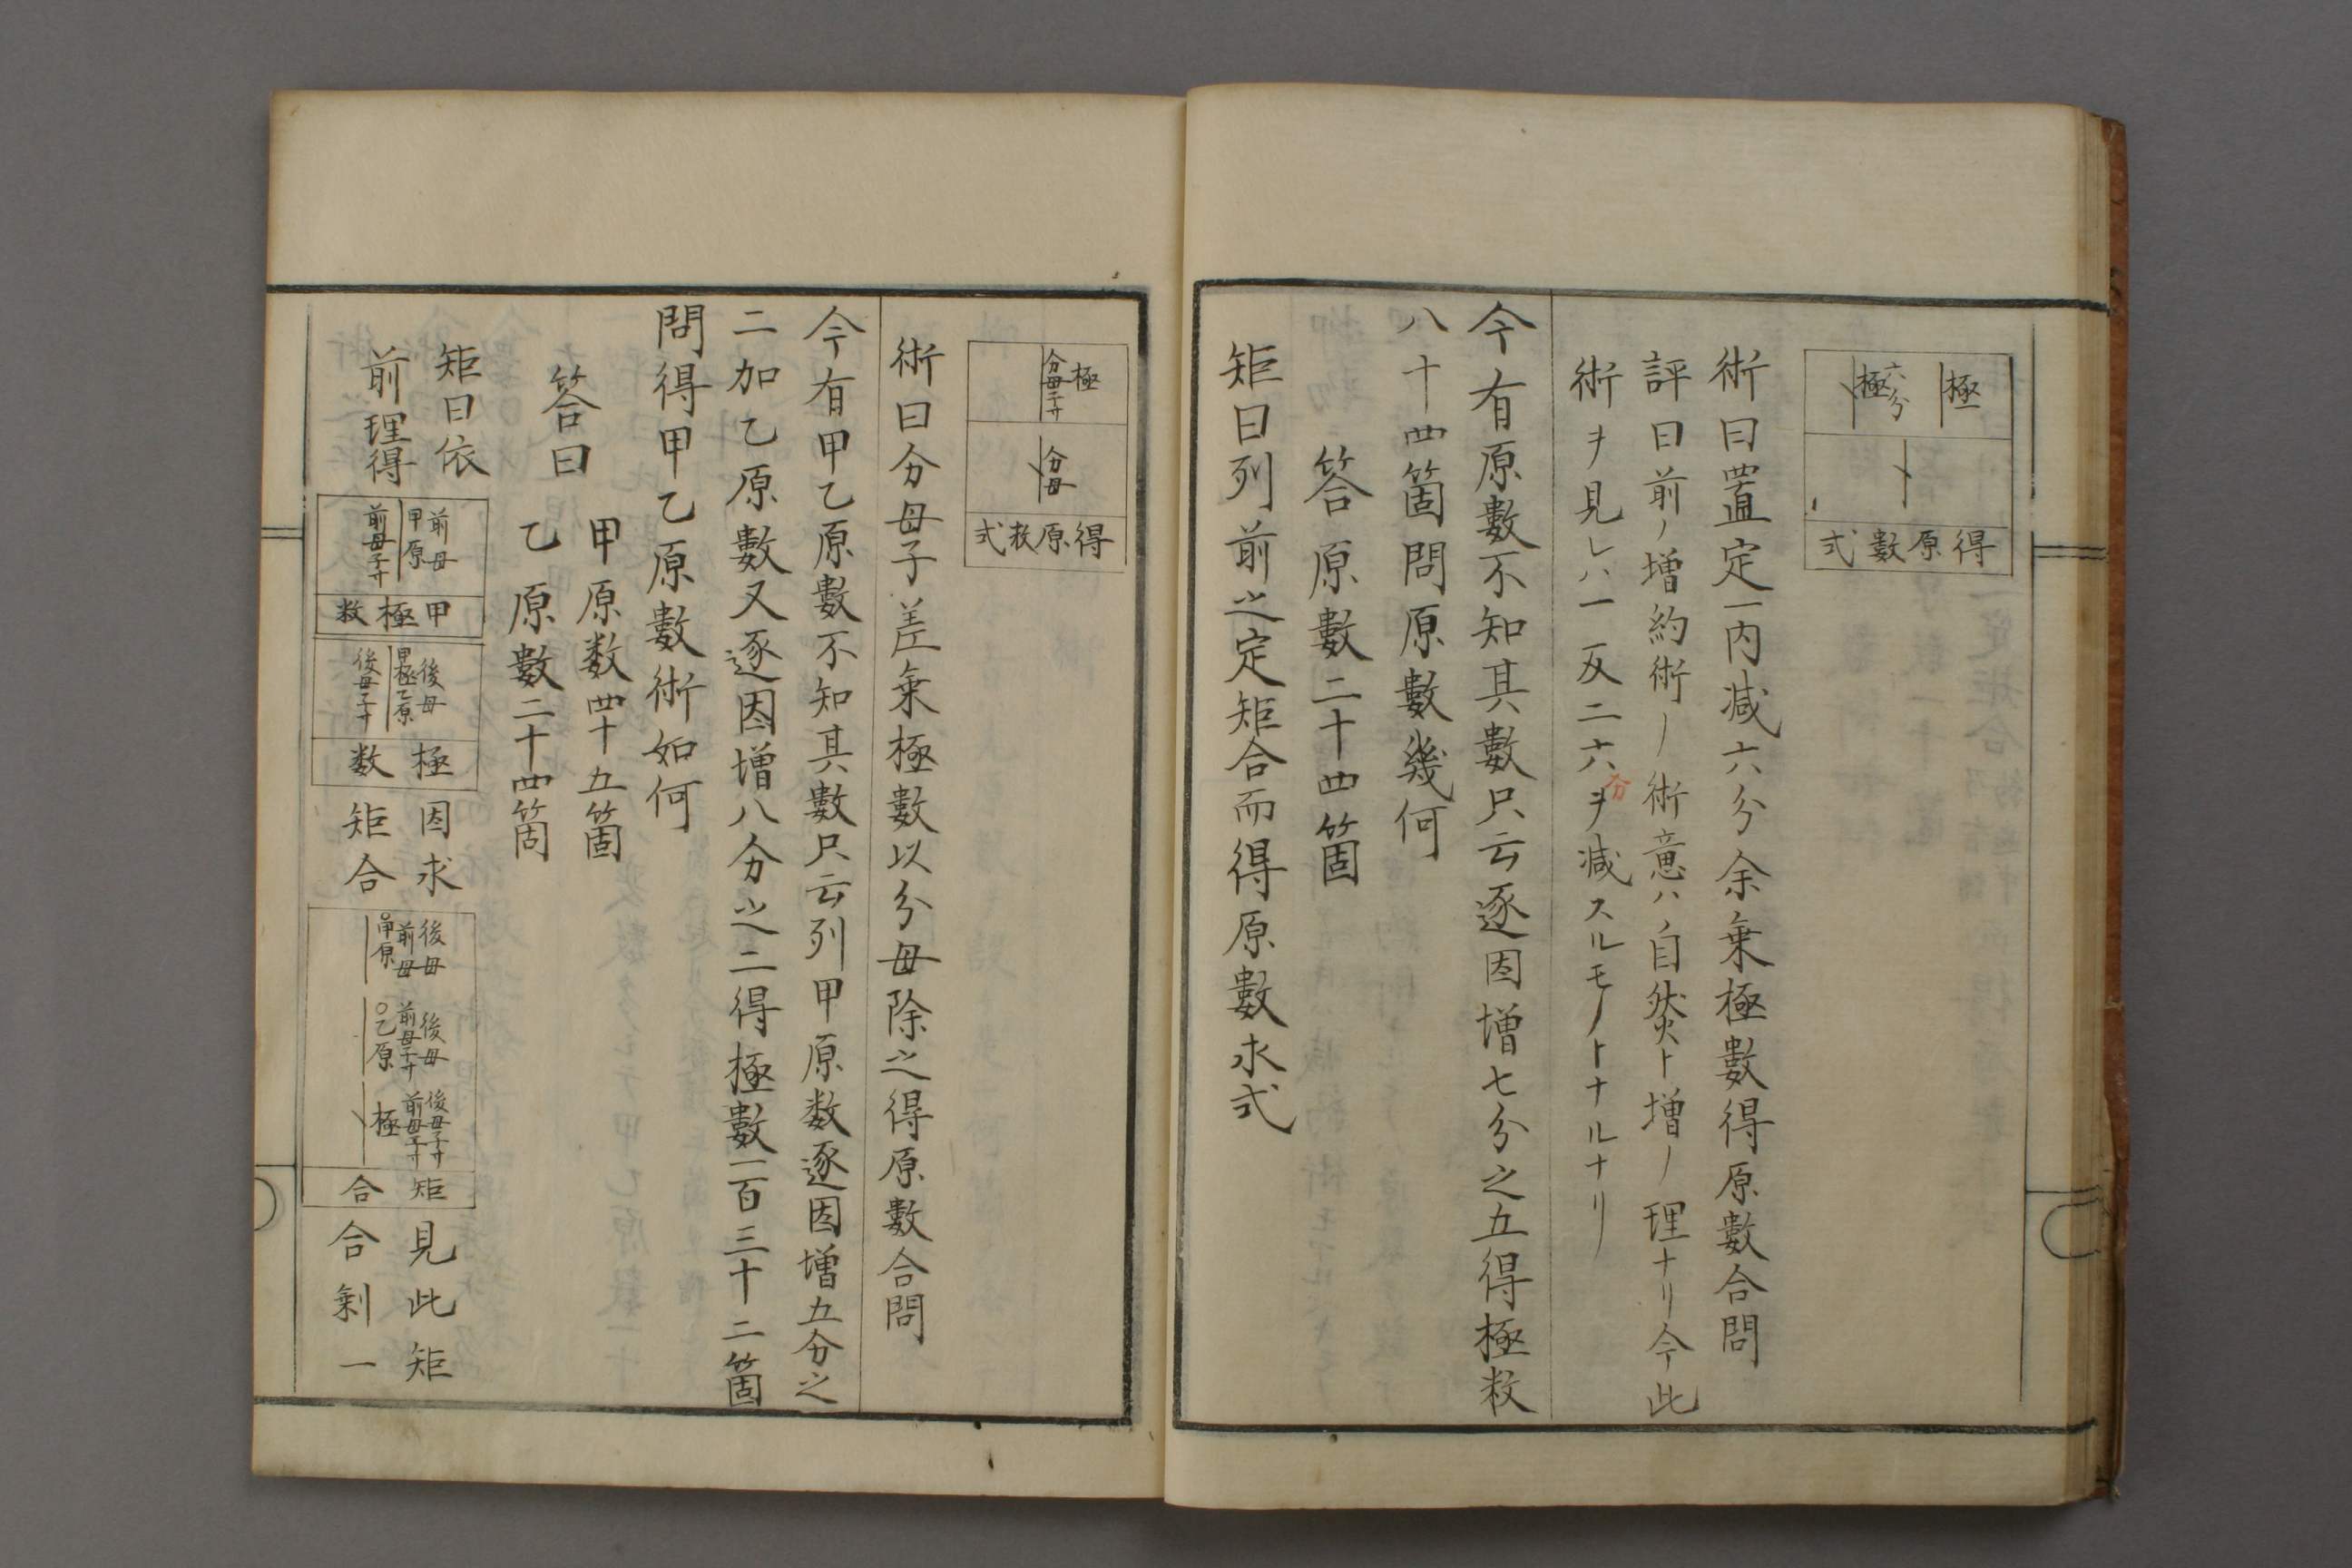 極 六分極
得原數式
術曰置定一內减六分余乗極數得原數合問
評曰前ノ増約術ノ術意ハ自然ト増ノ理ナリ今此
術ヲ見レハ一反二六分ヲ减スルモノトナルナリ
今有原數不知其數只云逐因増七分之五得極数
八十四箇問原數幾何
答原數二十四箇
矩曰列前之定矩合而得原數求式
極 分母子廾
分母
得原数式
術曰分母子差乗極數以分母除之得原數合問
今有甲乙原數不知其數只云列甲原数逐因増五分之
二加乙原數又逐因増八分之二得極數一百三十二箇
問得甲乙原數術如何
答曰
甲原数四十五箇
乙原數二十四箇
矩曰依
前理得
前母 甲原 前母子廾
甲極数
後母 甲極乙原 後母子廾
極数
因求
矩合
後母 前母 甲原
後母 前母子廾 乙原
後母子廾 前母子廾 極
矩合
見此矩
合剰一